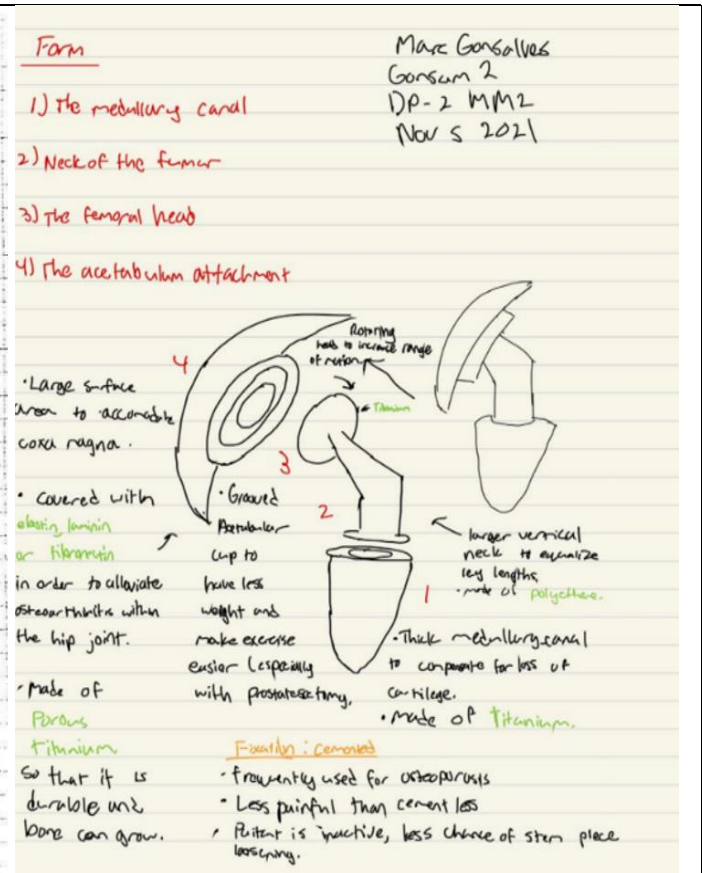 Form
Marc Gonsalves
Gonsam 2
DP-2 MM2
Nov 5 2021
1) The medullary canal
2) Neck of the femur
3) The femoral head
4) The acetabulum attachment
Rotoring
head to increase range
of motion
Titanium
4
3
2
1
• Large surface
area to accomodate
coxa magna.
• covered with
elastin, laminin
or fibronectin
in order to alleviate
osteoarthritis within
the hip joint.
• made of
Porous
titanium
So that it is
durable and
bone can grow.
• Grooved
Acetabular
cup to
have less
weight and
make exercise
easier (especially
with prostatesectomy.
larger vertical
neck to equalize
leg lengths.
• made of
• Thick medullary canal
to compensate for loss of
cartilege.
• made of titanium.
Fixation: cemented
• frequently used for osteoporosis
• Less painful than cement less
• Patient is inactive, less chance of stem piece
loosening.